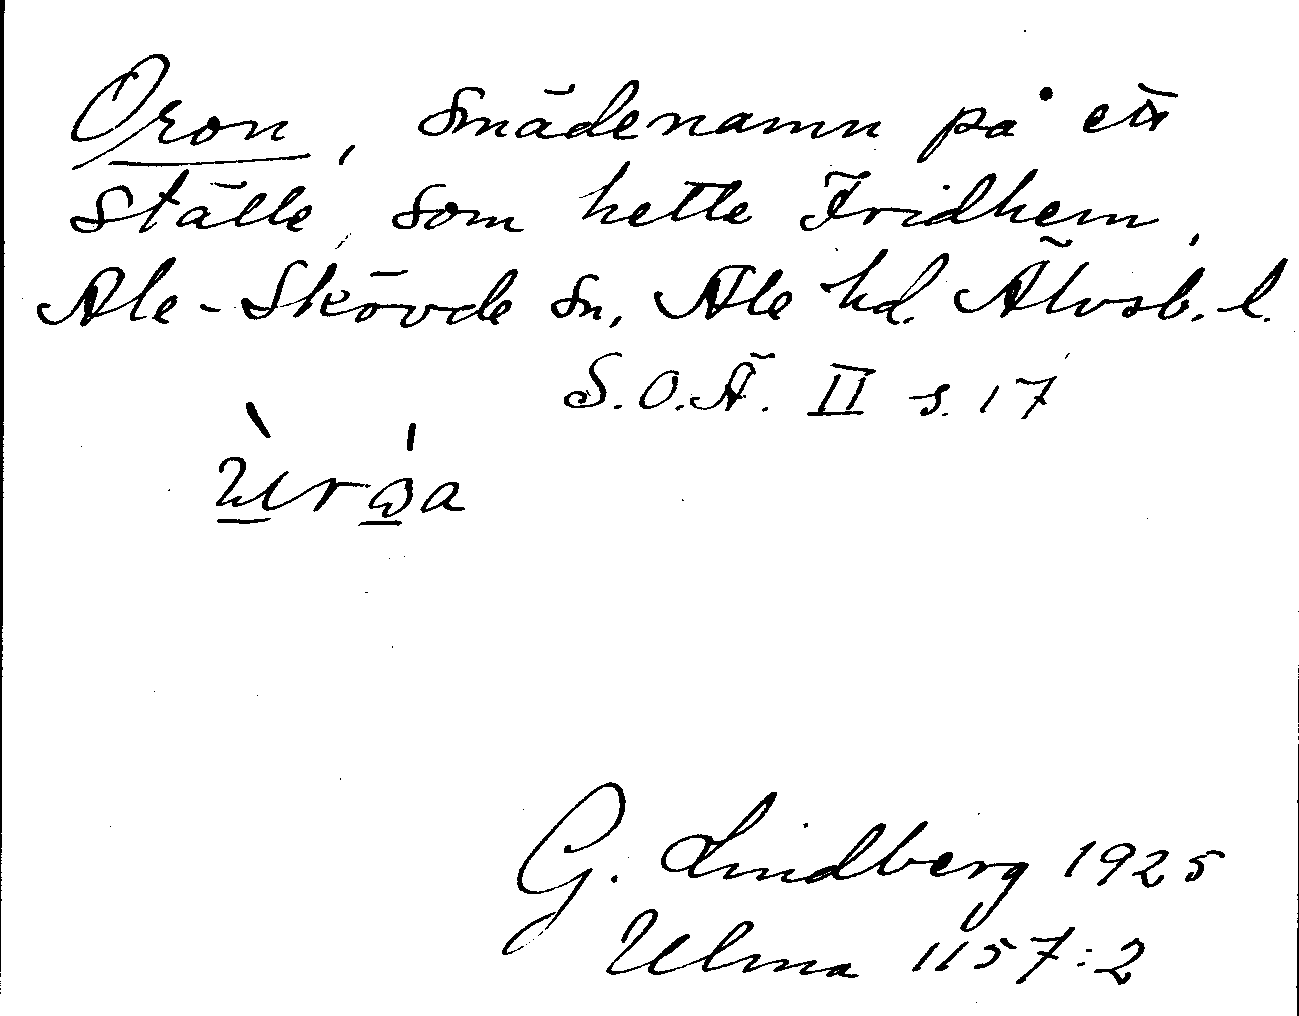 Oron, smädenamn på ett
ställe, som hette Fridhem,
Ale-Skövde sn, Ale hd. Älvsb. l.
S.O.Ä. II s. 17
G. Lindberg 1925
Ulma 1157:2